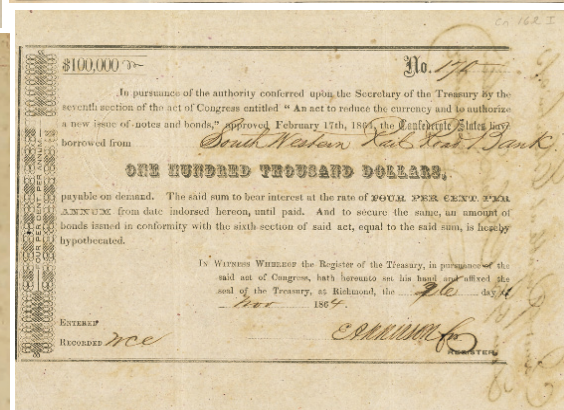 Cn 162 I
$100,000 No. 176
In pursuance of the authority conferred upon the Secretary of the Treasury by the
seventh section of the act of Congress entitled "An act to reduce the currency and to authorize
a new issue of notes and bonds," approved February 17th, 1864, the Confederate States have
borrowed from South Western Rail Road Bank.
ONE HUNDRED THOUSAND DOLLARS,
payable on demand. The said sum to bear interest at the rate of FOUR PER CENT. PER
ANNUM from date indorsed hereon, until paid. And to secure the same, an amount of
bonds issued in conformity with the sixth section of said act, equal to the said sum, is hereby
hypothecated.
IN WITNESS WHEREOF the Register of the Treasury, in pursuance of the
said act of Congress, hath hereunto set his hand and affixed the
seal of the Treasury, at Richmond, the day of
Nov 1864.
ENTERED
RECORDED WCC
REGISTER.
FOUR PER CENT. PER ANNUM.